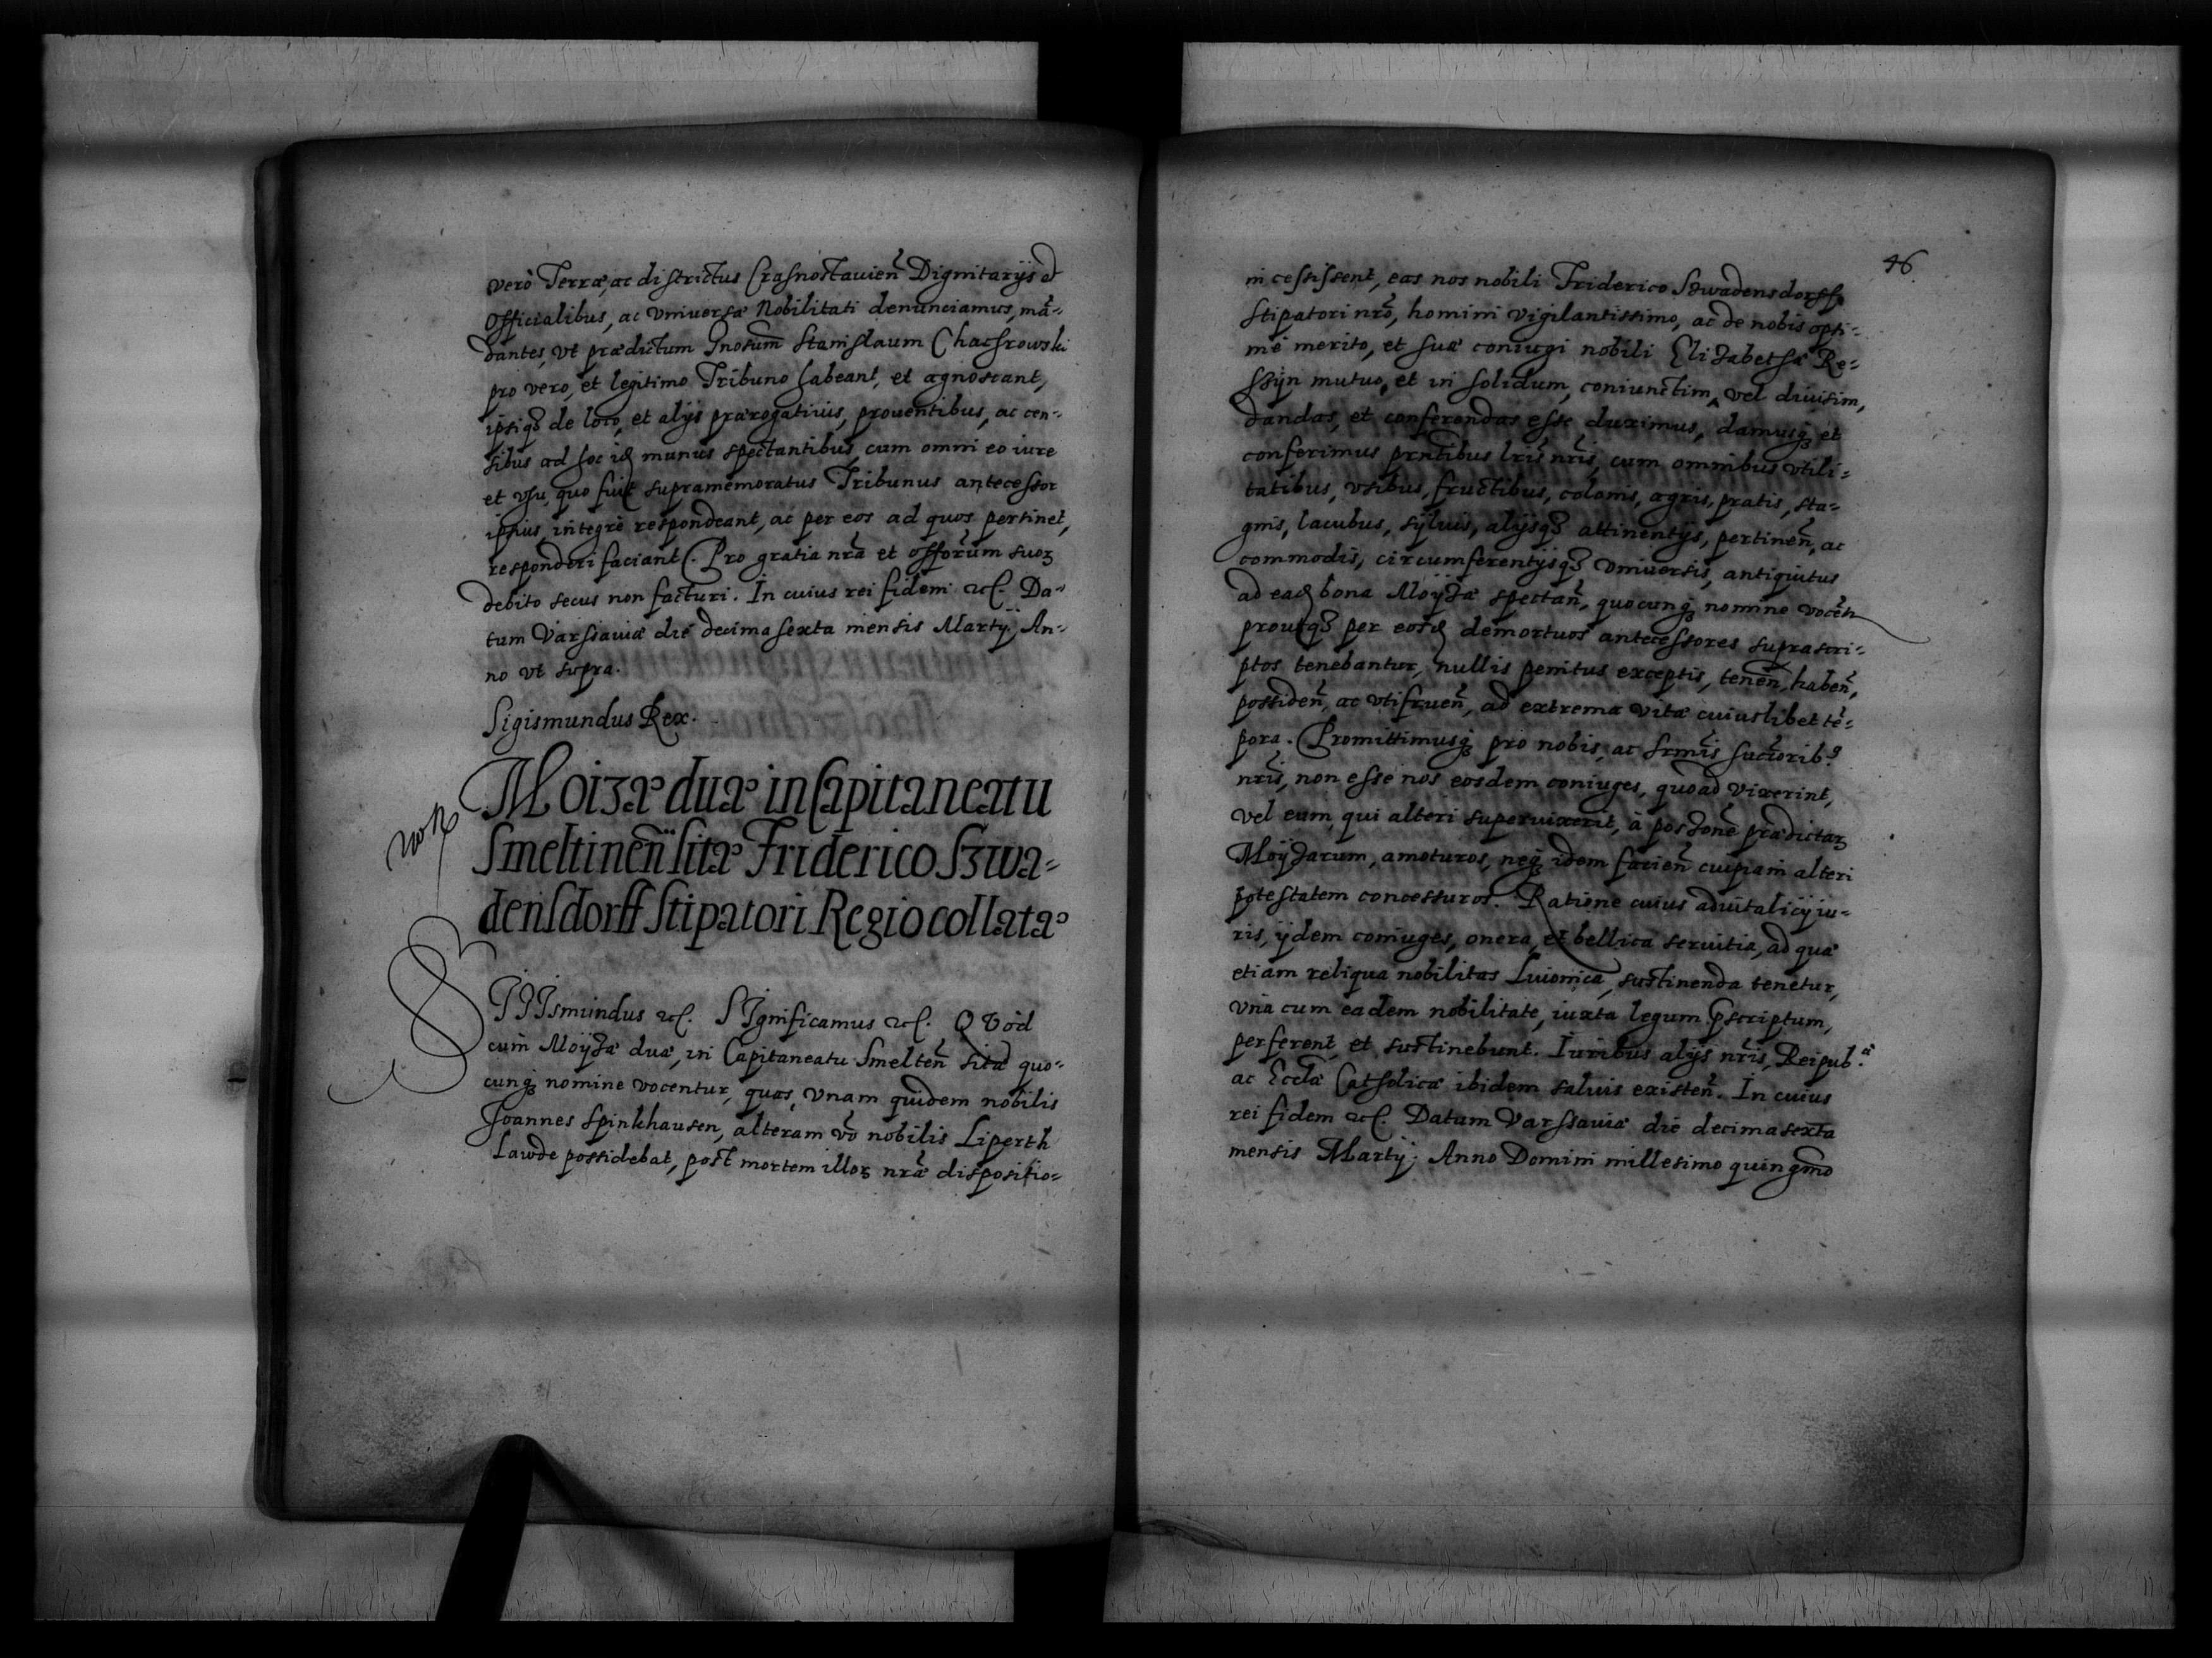 verò Terræ, ac districtus Crasnostauien̄ Dignitarijs et
Officialibus, ac vniuersæ Nobilitati denunciamus, mā-
dantes, vt prædictum Gnosum̄ Stanislaum Chachrowski
pro vero, et legitimo Tribuno habeant, et agnoscant,
ipsiq3 de loco, et alijs prærogatiuis, prouentibus, ac cen-
sibus ad hoc id munus spectantibus, cum omni eo iure
et vsu, quo fuit supramemoratus Tribunus antecessor
ipsius, integrè respondeant, ac per eos ad quos pertinet,
responderi faciant. Pro gratia nrā et offorum suoȝ
debito secus non facturi. In cuius rei fidem etc. Da-
tum Varsauiæ die decima sexta mensis Martij, An-
no vt supra.
Sigismundus Rex.
Moizæ duæ in Capitaneatu
Smeltinen̄ sitæ Friderico Szwa-
densdorff Stipatori Regio collatæ
SIGIsmundus etc. SIgnificamus etc. QVòd
cum Moyzæ duæ, in Capitaneatu Smelten̄ sitæ quo-
cunq3 nomine vocentur, quas, vnam quidem nobilis
Joannes Spinkhausen, alteram vō nobilis Liperth
Lawde possidebat, post mortem illoȝ nrǣ dispositio-
46.
ni cessissent, eas nos nobili Friderico Szwadensdorff
Stipatori nrō, homini vigilantissimo, ac de nobis opti-
mè merito, et suæ coniugi nobili Elizabethæ Re-
szyn mutuo, et in solidum, coniunctim, vel diuisim,
dandas, et conferendas esse duximus, damusq3 et
conferimus prn̄tibus lrīs nrīs, cum omnibus vtili-
tatibus, vsibus, fructibus, colonis, agris, pratis, sta-
gnis, lacubus, syluis, alijsq3 attinentijs, pertinen̄, ac
commodis, circumferentijsq3 vniuersis, antiquitus
ad ead bona Moyzæ spectan̄, quocunq3 nomine vocen̄
proutq3 per eosd demortuos antecessores suprascri-
ptos tenebantur, nullis penitus exceptis, tenen̄, haben̄,
possiden̄, ac vtifruen̄, ad extrema vitæ cuiuslibet tē-
pora. Promittimusq3 pro nobis, ac Srmīs succ̄orib9
nrīs, non esse nos eosdem coniuges, quoad vixerint,
vel eum, qui alteri superuixerit, à possōne prædictaȝ
Moyzarum, amoturos, neq3 idem facien̄ cuipiam alteri
potestatem concessuros. Ratione cuius aduitalicij iu-
ris, ijdem coniuges, onera, et bellica seruitia, ad quæ
etiam reliqua nobilitas Liuonica, sustinenda tenetur,
vnà cum eadem nobilitate, iuxta legum p̄scriptum,
perferent, et sustinebunt. Iuribus alijs nrīs, Reipub.æ
ac Ecclǣ Catholicæ ibidem saluis existen̄. In cuius
rei fidem etc. Datum Varssauiæ die decima sexta
mensis Martij. Anno Domini millesimo quingm̄o